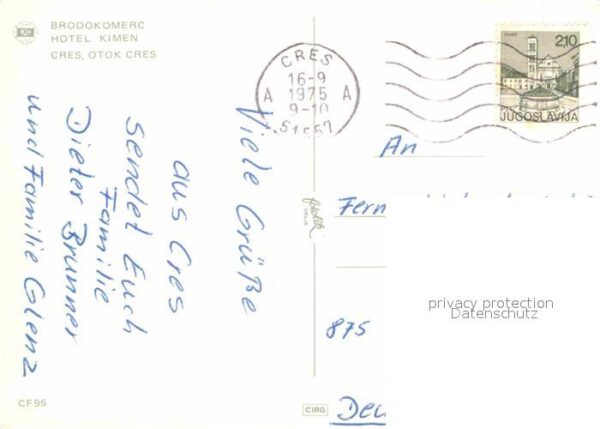 BRODOKOMERC
HOTEL KIMEN
CRES, OTOK CRES
CRES
16-9
1975
9-10
A A
51557
HVAR
2,10
JUGOSLAVIJA
Viele Grüße
aus Cres
sendet Euch
Familie
Dieter Brunner
und Familie Glenz
An
Fern
875
privacy protection
Datenschutz
CF95
CIRG